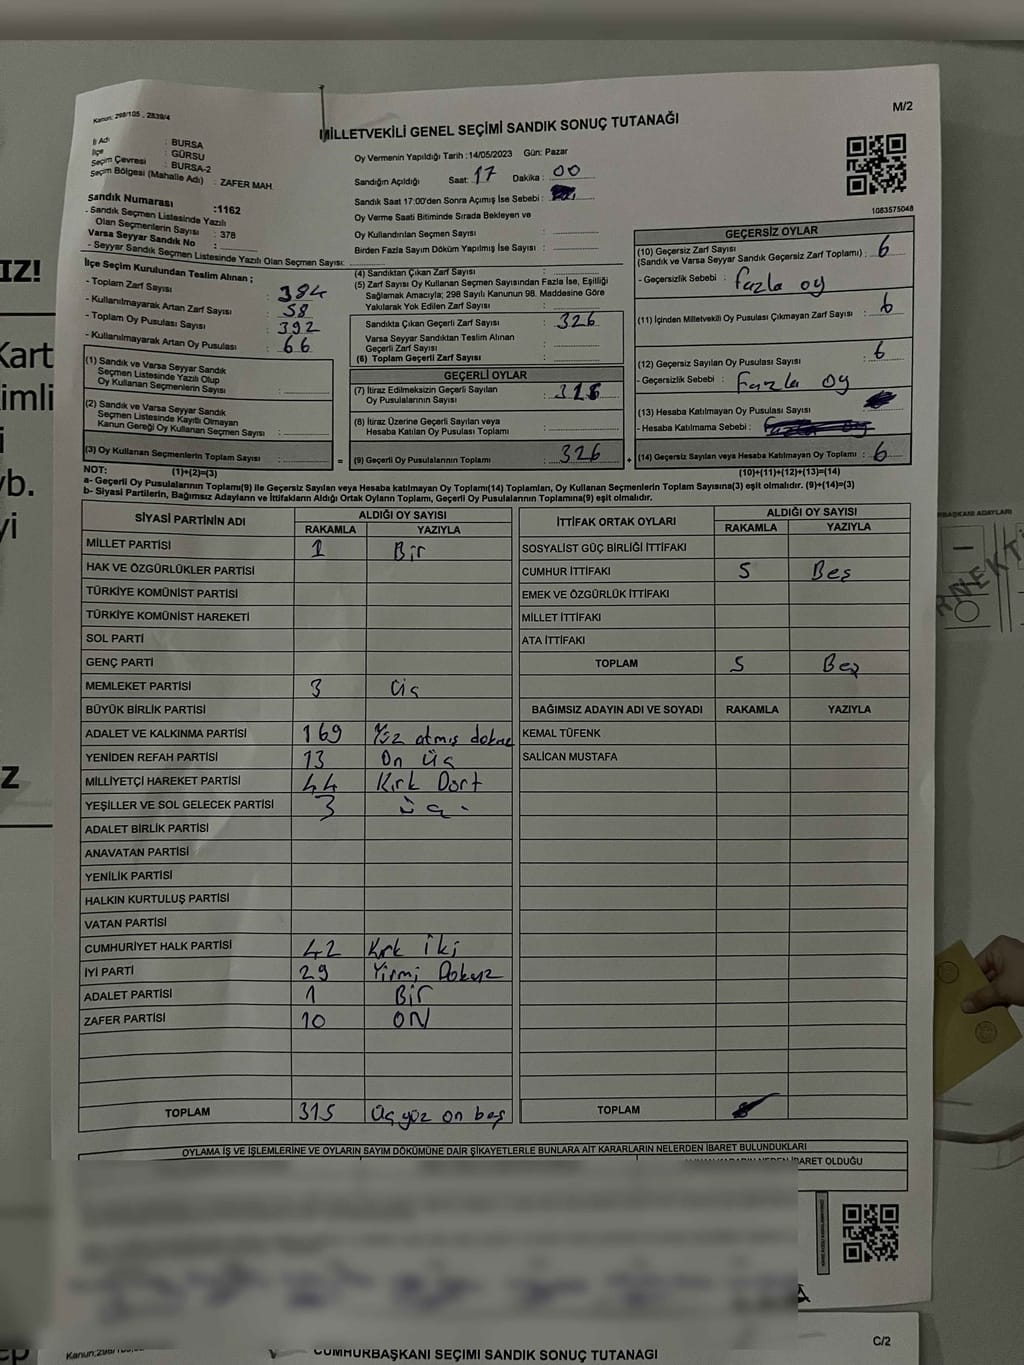 M/2
Kanun: 298/105 , 2839/4
MİLLETVEKİLİ GENEL SEÇİMİ SANDIK SONUÇ TUTANAĞI
İl Adı : BURSA
İlçe : GÜRSU
Seçim Çevresi : BURSA-2
Seçim Bölgesi (Mahalle Adı) : ZAFER MAH.
Oy Vermenin Yapıldığı Tarih :14/05/2023 Gün: Pazar
Sandığın Açıldığı Saat: 17 Dakika : 00
Sandık Saat 17:00'den Sonra Açımış İse Sebebi :
Oy Verme Saati Bitiminde Sırada Bekleyen ve
Oy Kullandırılan Seçmen Sayısı :
Birden Fazla Sayım Döküm Yapılmış İse Sayısı :
1083575048
Sandık Numarası :1162
- Sandık Seçmen Listesinde Yazılı
Olan Seçmenlerin Sayısı : 378
Varsa Seyyar Sandık No :
- Seyyar Sandık Seçmen Listesinde Yazılı Olan Seçmen Sayısı:
İlçe Seçim Kurulundan Teslim Alınan ;
- Toplam Zarf Sayısı : 384
- Kullanılmayarak Artan Zarf Sayısı : 58
- Toplam Oy Pusulası Sayısı : 392
- Kullanılmayarak Artan Oy Pusulası : 66
(1) Sandık ve Varsa Seyyar Sandık
Seçmen Listesinde Yazılı Olup
Oy Kullanan Seçmenlerin Sayısı :
(2) Sandık ve Varsa Seyyar Sandık
Seçmen Listesinde Kayıtlı Olmayan
Kanun Gereği Oy Kullanan Seçmen Sayısı :
(3) Oy Kullanan Seçmenlerin Toplam Sayısı :
(4) Sandıktan Çıkan Zarf Sayısı :
(5) Zarf Sayısı Oy Kullanan Seçmen Sayısından Fazla İse, Eşitliği
Sağlamak Amacıyla; 298 Sayılı Kanunun 98. Maddesine Göre
Yakılarak Yok Edilen Zarf Sayısı :
Sandıkta Çıkan Geçerli Zarf Sayısı : 326
Varsa Seyyar Sandıktan Teslim Alınan
Geçerli Zarf Sayısı :
(6) Toplam Geçerli Zarf Sayısı :
GEÇERLİ OYLAR
(7) İtiraz Edilmeksizin Geçerli Sayılan
Oy Pusulalarının Sayısı :
(8) İtiraz Üzerine Geçerli Sayılan veya
Hesaba Katılan Oy Pusulası Toplamı :
= (9) Geçerli Oy Pusulalarının Toplamı : 326
GEÇERSİZ OYLAR
(10) Geçersiz Zarf Sayısı
(Sandık ve Varsa Seyyar Sandık Geçersiz Zarf Toplamı) : 6
- Geçersizlik Sebebi : fazla oy
(11) İçinden Milletvekili Oy Pusulası Çıkmayan Zarf Sayısı : 6
(12) Geçersiz Sayılan Oy Pusulası Sayısı : 6
- Geçersizlik Sebebi : Fazla oy
(13) Hesaba Katılmayan Oy Pusulası Sayısı :
- Hesaba Katılmama Sebebi :
+ (14) Geçersiz Sayılan veya Hesaba Katılmayan Oy Toplamı : 6
NOT: (1)+(2)=(3) (10)+(11)+(12)+(13)=(14)
a- Geçerli Oy Pusulalarının Toplamı(9) ile Geçersiz Sayılan veya Hesaba katılmayan Oy Toplamı(14) Toplamları, Oy Kullanan Seçmenlerin Toplam Sayısına(3) eşit olmalıdır. (9)+(14)=(3)
b- Siyasi Partilerin, Bağımsız Adayların ve İttifakların Aldığı Ortak Oyların Toplamı, Geçerli Oy Pusulalarının Toplamına(9) eşit olmalıdır.
SİYASİ PARTİNİN ADI ALDIĞI OY SAYISI
RAKAMLA YAZIYLA
MİLLET PARTİSİ 1 Bir
HAK VE ÖZGÜRLÜKLER PARTİSİ
TÜRKİYE KOMÜNİST PARTİSİ
TÜRKİYE KOMÜNİST HAREKETİ
SOL PARTİ
GENÇ PARTİ
MEMLEKET PARTİSİ 3 üç
BÜYÜK BİRLİK PARTİSİ
ADALET VE KALKINMA PARTİSİ 169 Yüz atmış dokuz
YENİDEN REFAH PARTİSİ 13 On üç
MİLLİYETÇİ HAREKET PARTİSİ 44 Kırk Dört
YEŞİLLER VE SOL GELECEK PARTİSİ 3 üç
ADALET BİRLİK PARTİSİ
ANAVATAN PARTİSİ
YENİLİK PARTİSİ
HALKIN KURTULUŞ PARTİSİ
VATAN PARTİSİ
CUMHURİYET HALK PARTİSİ 42 Kırk iki
İYİ PARTİ 29 Yirmi Dokuz
ADALET PARTİSİ 1 Bir
ZAFER PARTİSİ 10 ON
TOPLAM 315 Üçyüz on beş
İTTİFAK ORTAK OYLARI ALDIĞI OY SAYISI
RAKAMLA YAZIYLA
SOSYALİST GÜÇ BİRLİĞİ İTTİFAKI
CUMHUR İTTİFAKI 5 Beş
EMEK VE ÖZGÜRLÜK İTTİFAKI
MİLLET İTTİFAKI
ATA İTTİFAKI
TOPLAM 5 Beş
BAĞIMSIZ ADAYIN ADI VE SOYADI RAKAMLA YAZIYLA
KEMAL TÜFENK
SALİCAN MUSTAFA
TOPLAM
OYLAMA İŞ VE İŞLEMLERİNE VE OYLARIN SAYIM DÖKÜMÜNE DAİR ŞİKAYETLERLE BUNLARA AİT KARARLARIN NELERDEN İBARET BULUNDUKLARI
İBARET OLDUĞU
C/2
CUMHURBAŞKANI SEÇİMİ SANDIK SONUÇ TUTANAĞI
IZ!
Kart
imli
yb.
yi
z